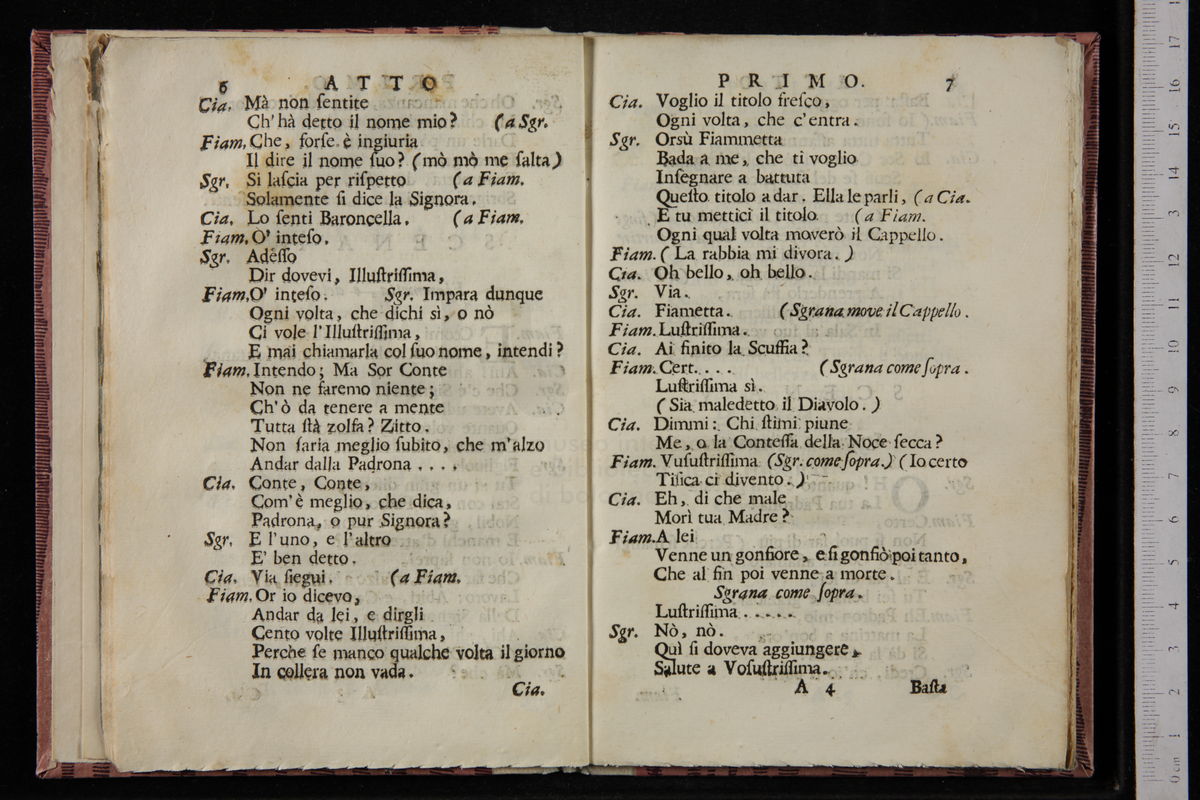 6 ATTO
Cia. Mà non ſentite
Ch'hà detto il nome mio? (a Sgr.
Fiam. Che, forſe è ingiuria
Il dire il nome ſuo? (mò mò me ſalta)
Sgr. Si laſcia per riſpetto (a Fiam.
Solamente ſi dice la Signora.
Cia. Lo ſenti Baroncella. (a Fiam.
Fiam. O' inteſo.
Sgr. Adeſſo
Dir dovevi, Illuſtriſſima,
Fiam. O' inteſo. Sgr. Impara dunque
Ogni volta, che dichi sì, o nò
Ci vole l'Illuſtriſſima,
E mai chiamarla col ſuo nome, intendi?
Fiam. Intendo; Ma Sor Conte
Non ne faremo niente;
Ch'ò da tenere a mente
Tutta ſtà zolfa? Zitto.
Non ſaria meglio ſubito, che m'alzo
Andar dalla Padrona . . . .
Cia. Conte, Conte,
Com'è meglio, che dica,
Padrona, o pur Signora?
Sgr. E l'uno, e l'altro
E' ben detto.
Cia. Via ſiegui. (a Fiam.
Fiam. Or io dicevo,
Andar da lei, e dirgli
Cento volte Illuſtriſſima,
Perche ſe manco qualche volta il giorno
In collera non vada.
Cia.
PRIMO. 7
Cia. Voglio il titolo freſco,
Ogni volta, che c'entra.
Sgr. Orsù Fiammetta
Bada a me, che ti voglio
Inſegnare a battuta
Queſto titolo a dar. Ella le parli, (a Cia.
E tu mettici il titolo (a Fiam.
Ogni qual volta moverò il Cappello.
Fiam. (La rabbia mi divora.)
Cia. Oh bello, oh bello.
Sgr. Via.
Cia. Fiametta. (Sgrana move il Cappello.
Fiam. Luſtriſſima.
Cia. Ai finito la Scuffia?
Fiam. Cert. . . . (Sgrana come ſopra.
Luſtriſſima sì.
(Sia maledetto il Diavolo.)
Cia. Dimmi: Chi ſtimi piune
Me, o la Conteſſa della Noce ſecca?
Fiam. Vuſuſtriſſima (Sgr. come ſopra.) (Io certo
Tiſica ci divento.)
Cia. Eh, di che male
Morì tua Madre?
Fiam. A lei
Venne un gonfiore, e ſi gonfiò poi tanto,
Che al fin poi venne a morte.
Sgrana come ſopra.
Luſtriſſima . . . . .
Sgr. Nò, nò.
Quì ſi doveva aggiungere
Salute a Voſuſtriſſima.
A 4 Baſta